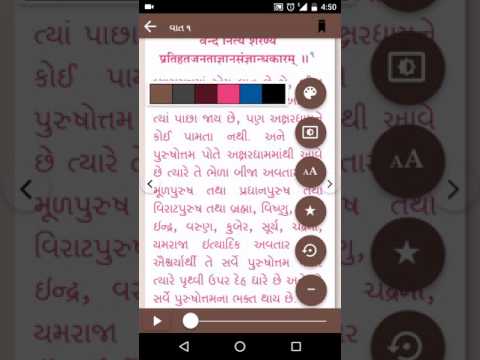 4:50
વાત ૧
વન્દે નિત્યં શરણ્યં
પ્રતિહતજનતાજ્ઞાનસંજ્ઞાન્ધકારમ્ ॥૧
ત્યાં પાછા જાય છે, પણ અક્ષરધામને
કોઈ પામતા નથી. અને
પુરુષોત્તમ પોતે અક્ષરધામમાંથી આવે
છે ત્યારે તે ભેળા બીજા અવતાર
મૂળપુરુષ તથા પ્રધાનપુરુષ તથા
વિરાટપુરુષ તથા બ્રહ્મા, વિષ્ણુ,
ઇન્દ્ર, વરુણ, કુબેર, સૂર્ય, ચંદ્રમા,
યમરાજા ઇત્યાદિક અવતાર
ઐશ્વર્યાર્થી તે સર્વે પુરુષોત્તમ
ત્યારે પૃથ્વી ઉપર દેહ ધારે છે અને
સર્વે પુરુષોત્તમના ભક્ત થાય છે.
AA